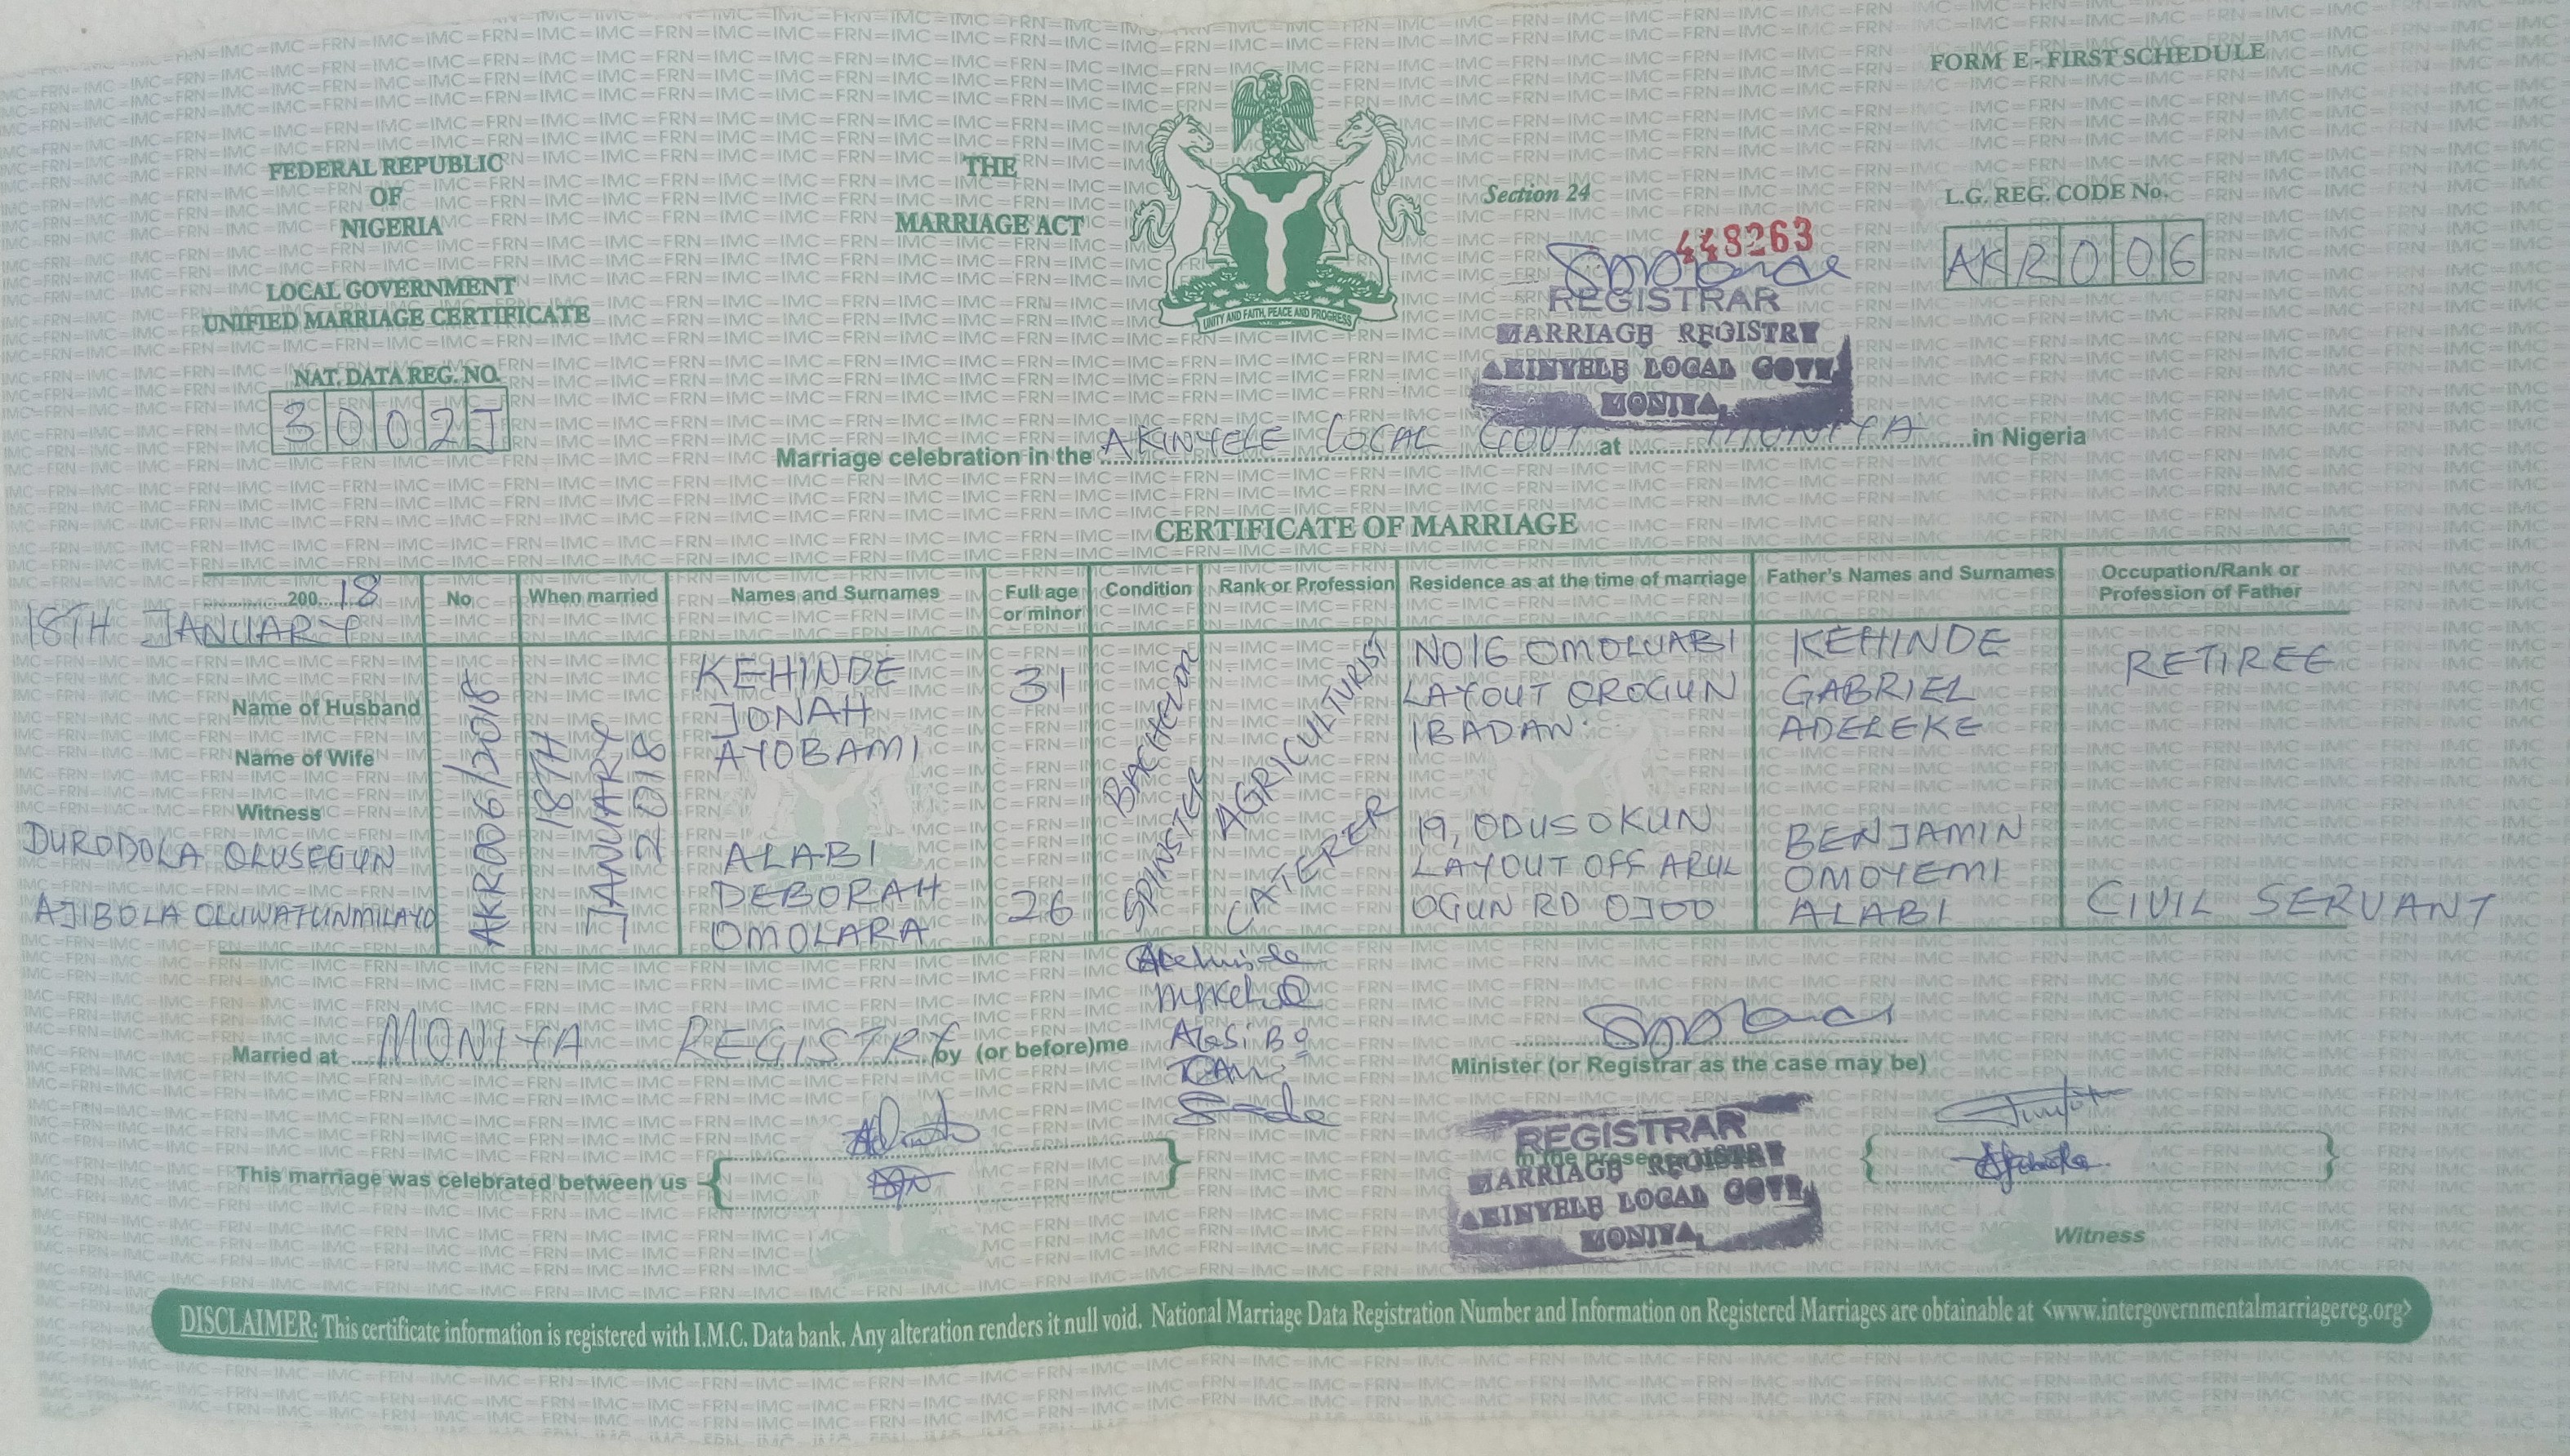 FORM E - FIRST SCHEDULE
FEDERAL REPUBLIC
OF
NIGERIA
THE
MARRIAGE ACT
UNITY AND FAITH, PEACE AND PROGRESS
Section 24
L.G. REG. CODE No.
AKR006
448263
LOCAL GOVERNMENT
UNIFIED MARRIAGE CERTIFICATE
REGISTRAR
MARRIAGE REGISTRY
AKINYELE LOCAL GOVT.
MONIYA
NAT. DATA REG. NO.
3002J
Marriage celebration in the AKINYELE LOCAL GOVT at MONIYA in Nigeria
CERTIFICATE OF MARRIAGE
200 18
18TH JANUARY
No
When married
Names and Surnames
Full age or minor
Condition
Rank or Profession
Residence as at the time of marriage
Father's Names and Surnames
Occupation/Rank or Profession of Father
Name of Husband
Name of Wife
Witness
DURODOLA OLUSEGUN
AJIBOLA OLUWATUNMILAYO
AKR006/2018
18TH
JANUARY
2018
KEHINDE
JONAH
AYOBAMI
31
BACHELOR
AGRICULTURIST
NO16 OMOLUABI
LAYOUT OROGUN
IBADAN
KEHINDE
GABRIEL
ADELEKE
RETIREE
ALABI
DEBORAH
OMOLARA
26
SPINSTER
CATERER
19, ODUSOKUN
LAYOUT OFF ARUL
OGUN RD OJOO
BENJAMIN
OMOYEMI
ALABI
CIVIL SERVANT
Married at MONIYA REGISTRY by (or before)me
Minister (or Registrar as the case may be)
This marriage was celebrated between us
REGISTRAR
in the presence
MARRIAGE REGISTRY
AKINYELE LOCAL GOVT.
MONIYA
Witness
DISCLAIMER: This certificate information is registered with I.M.C. Data bank. Any alteration renders it null void. National Marriage Data Registration Number and Information on Registered Marriages are obtainable at <www.intergovernmentalmarriagereg.org>